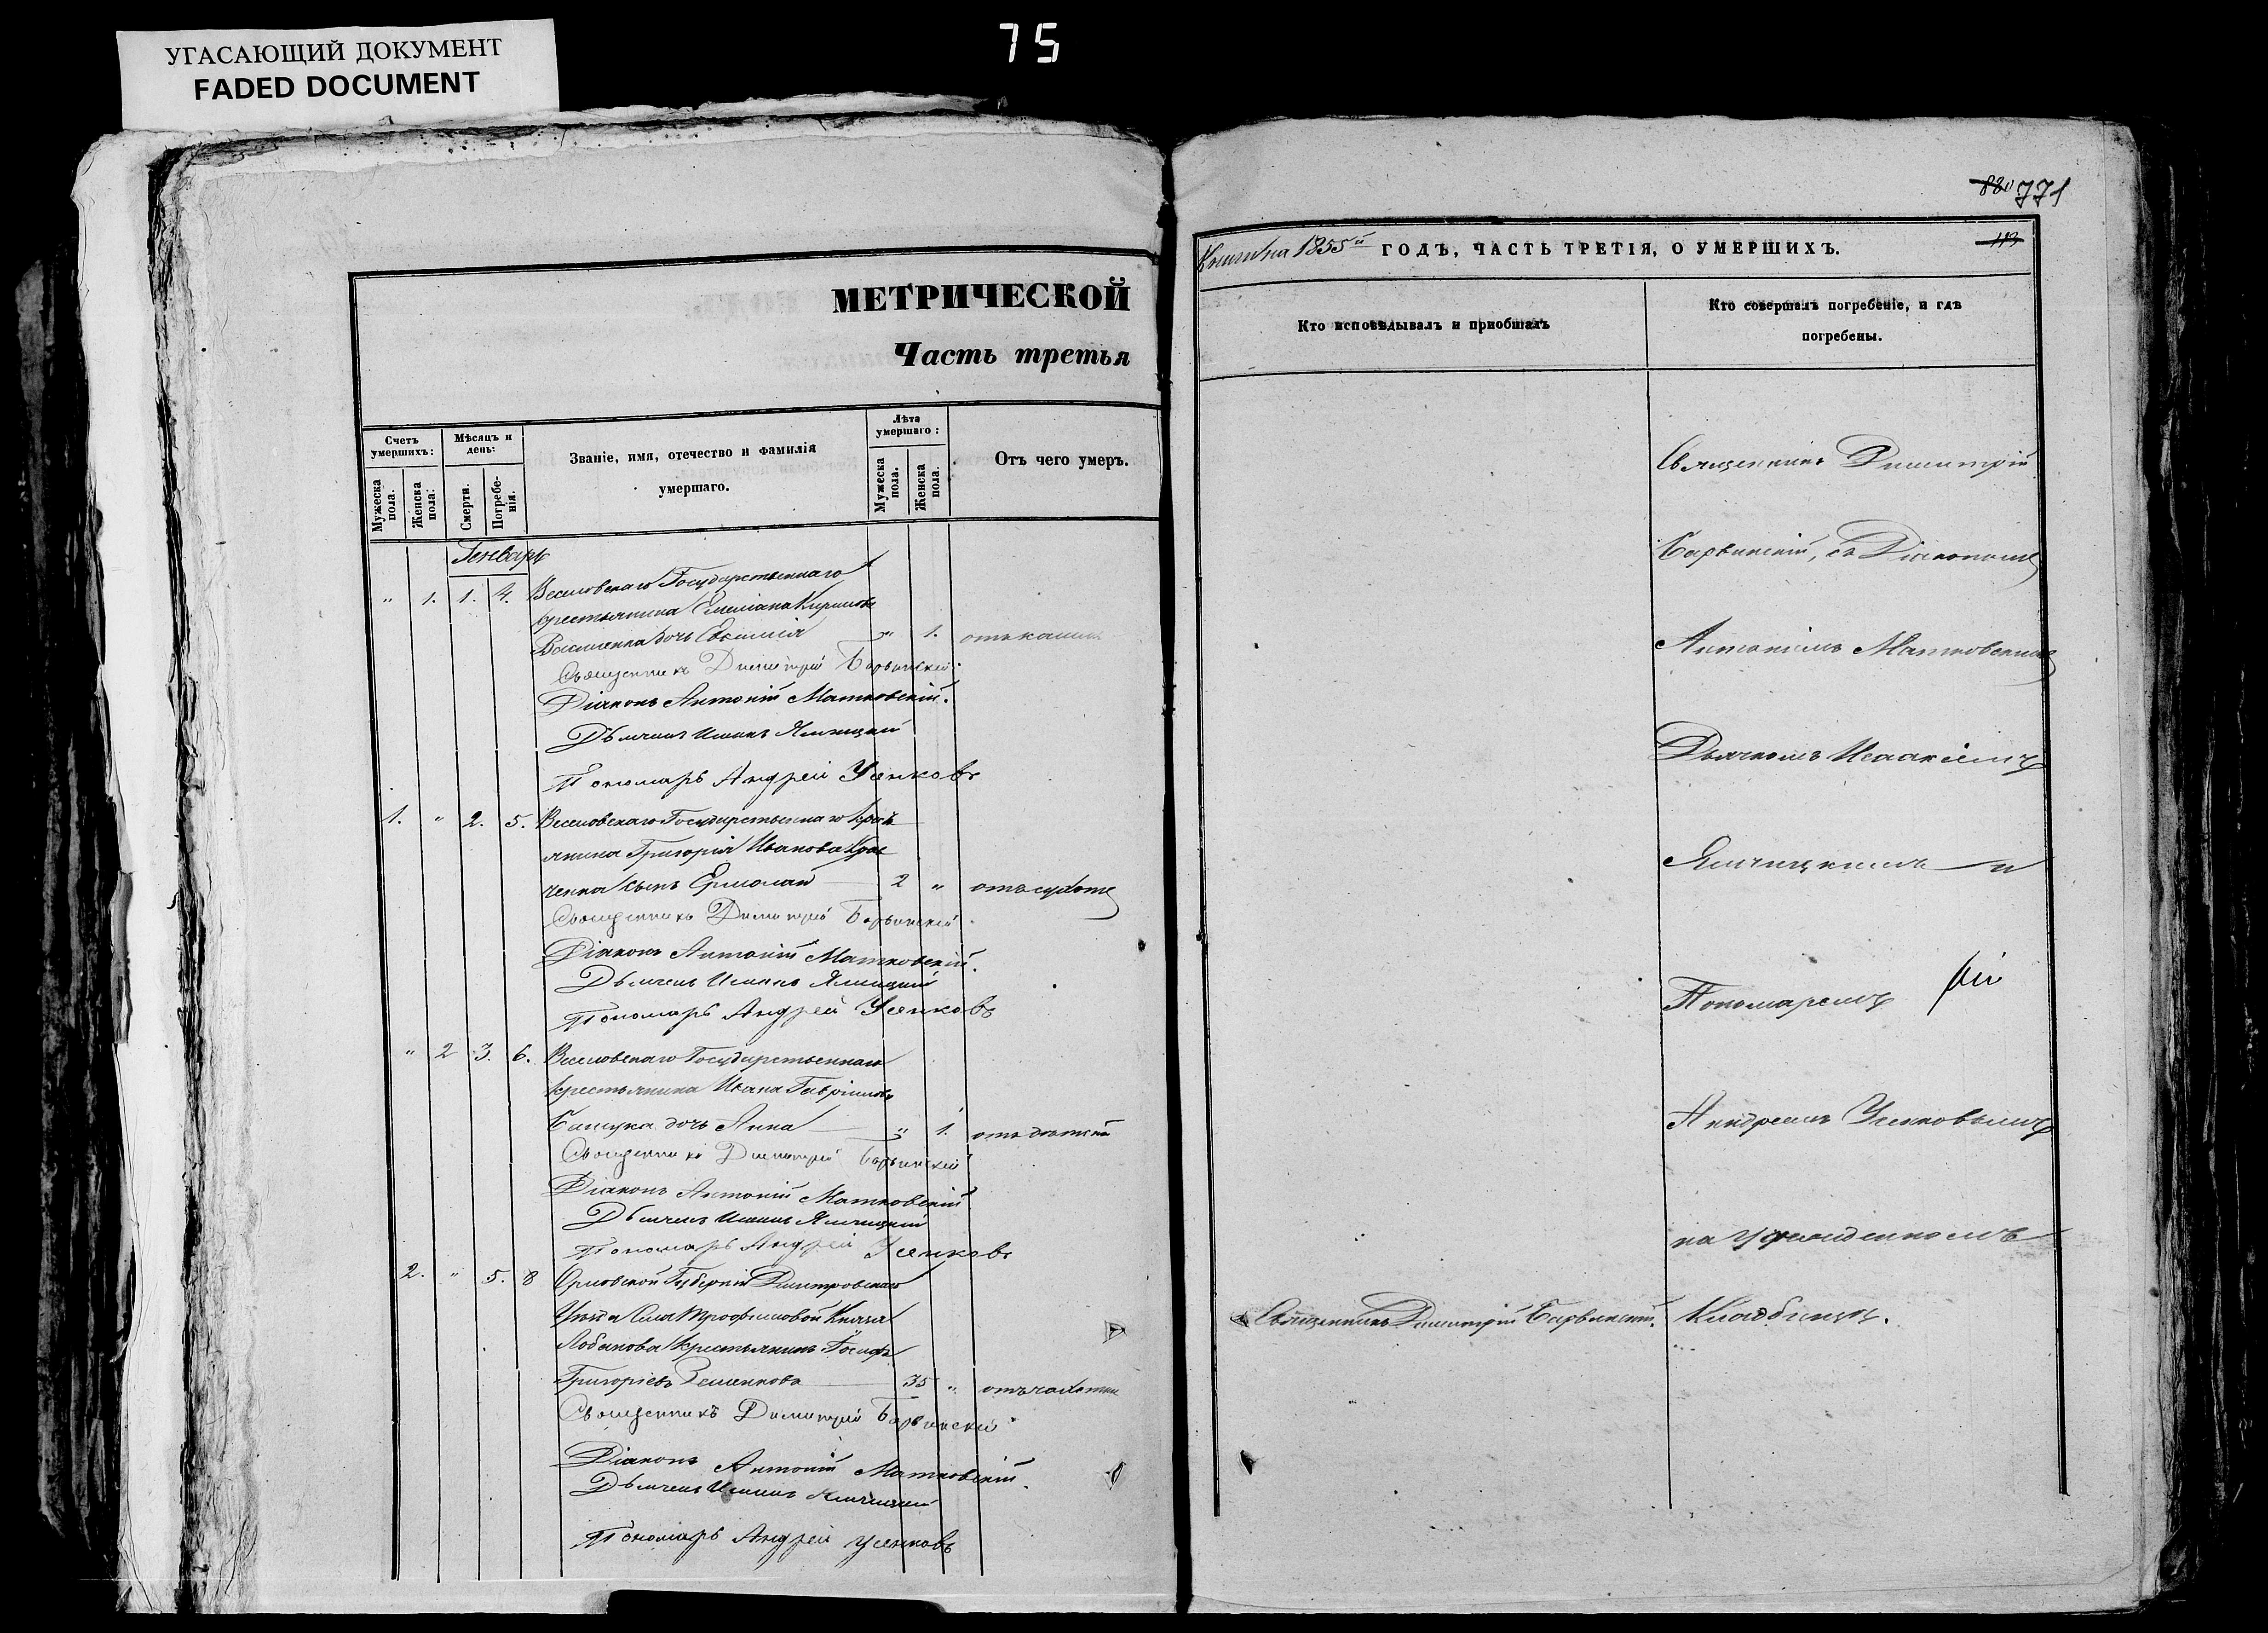 УГАСАЮЩИЙ ДОКУМЕНТ
FADED DOCUMENT
75
МЕТРИЧЕСКОЙ
Часть третья
Счетъ умершихъ:
Мѣсяцъ и день:
Званіе, имя, отечество и фамилія умершаго.
Лѣта умершаго:
Отъ чего умеръ.
Мужеска пола.
Женска пола:
Смерти.
Погребенія.
Мужеска пола.
Женска пола.
Генварь
" 1. 1. 4. Веселовскаго Государственнаго
крестьянина Емеліана Кирилова
дочь Евѳимія " 1. отъ кашля
Священникъ Димитрій Барвинскій.
Діаконъ Антоній Матковскій.
Дьячекъ Исаакъ Ялчицкій
Пономарь Андрей Усенковъ
1. " 2. 5. Веселовскаго Государственнаго крестьянина Григорія Иванова
ченка сынъ Ермолай 2 " отъ сухоты
Священникъ Димитрій Барвинскій.
Діаконъ Антоній Матковскій.
Дьячекъ Исаакъ Ялчицкій
Пономарь Андрей Усенковъ
" 2 3. 6. Веселовскаго Государственнаго
крестьянина Ивана Гавріилова
дочь Анна " 1. отъ
Священникъ Димитрій Барвинскій
Діаконъ Антоній Матковскій
Дьячекъ Исаакъ Ялчицкій
Пономарь Андрей Усенковъ
2. " 5. 8 Орловской Губерніи Дмитровскаго
Уѣзда Села Трофимовой Князя
Лобанова крестьянинъ Іосифъ
Григорьевъ 35 " отъ чахотки
Священникъ Димитрій Барвинскій
Діаконъ Антоній Матковскій.
Дьячекъ Исаакъ Ялчицкій
Пономарь Андрей Усенковъ
820 771
Книги на 1855й ГОДЪ, ЧАСТЬ ТРЕТІЯ, О УМЕРШИХЪ.
113
Кто исповѣдывалъ и пріобщалъ
Кто совершалъ погребеніе, и гдѣ
погребены.
Священникъ Димитрій
Барвинскій, съ Діакономъ
Антоніемъ Матковскимъ
Дьячкомъ Исаакіемъ
Ялчицкимъ и
Пономаремъ
Андреемъ Усенковымъ
на учрежденномъ
Священникъ Димитрій Барвинскій. Кладбищѣ.